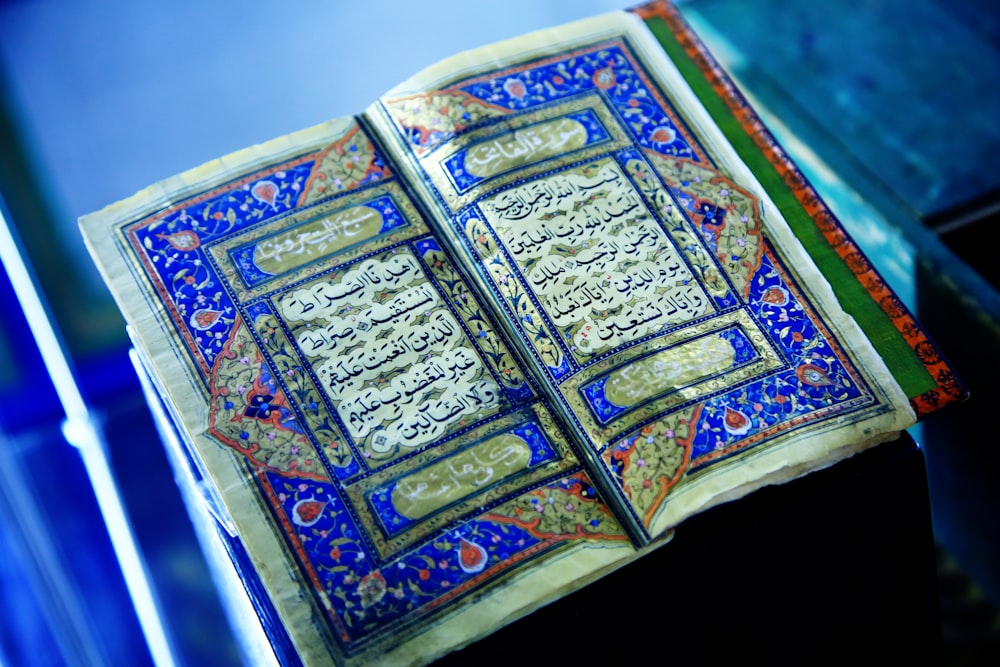 سورة الفاتحة
بِسْمِ اللهِ الرَّحْمٰنِ الرَّحِيمِ
اَلْحَمْدُ لِلّٰهِ رَبِّ الْعٰلَمِينَ
الرَّحْمٰنِ الرَّحِيمِ مٰلِكِ
يَوْمِ الدِّينِ اِيَّاكَ نَعْبُدُ
وَاِيَّاكَ نَسْتَعِينُ
اِهْدِنَا الصِّرَاطَ
الْمُسْتَقِيمَ صِرَاطَ
الَّذِينَ اَنْعَمْتَ عَلَيْهِمْ
غَيْرِ الْمَغْضُوبِ عَلَيْهِمْ
وَلَا الضَّالِّينَ